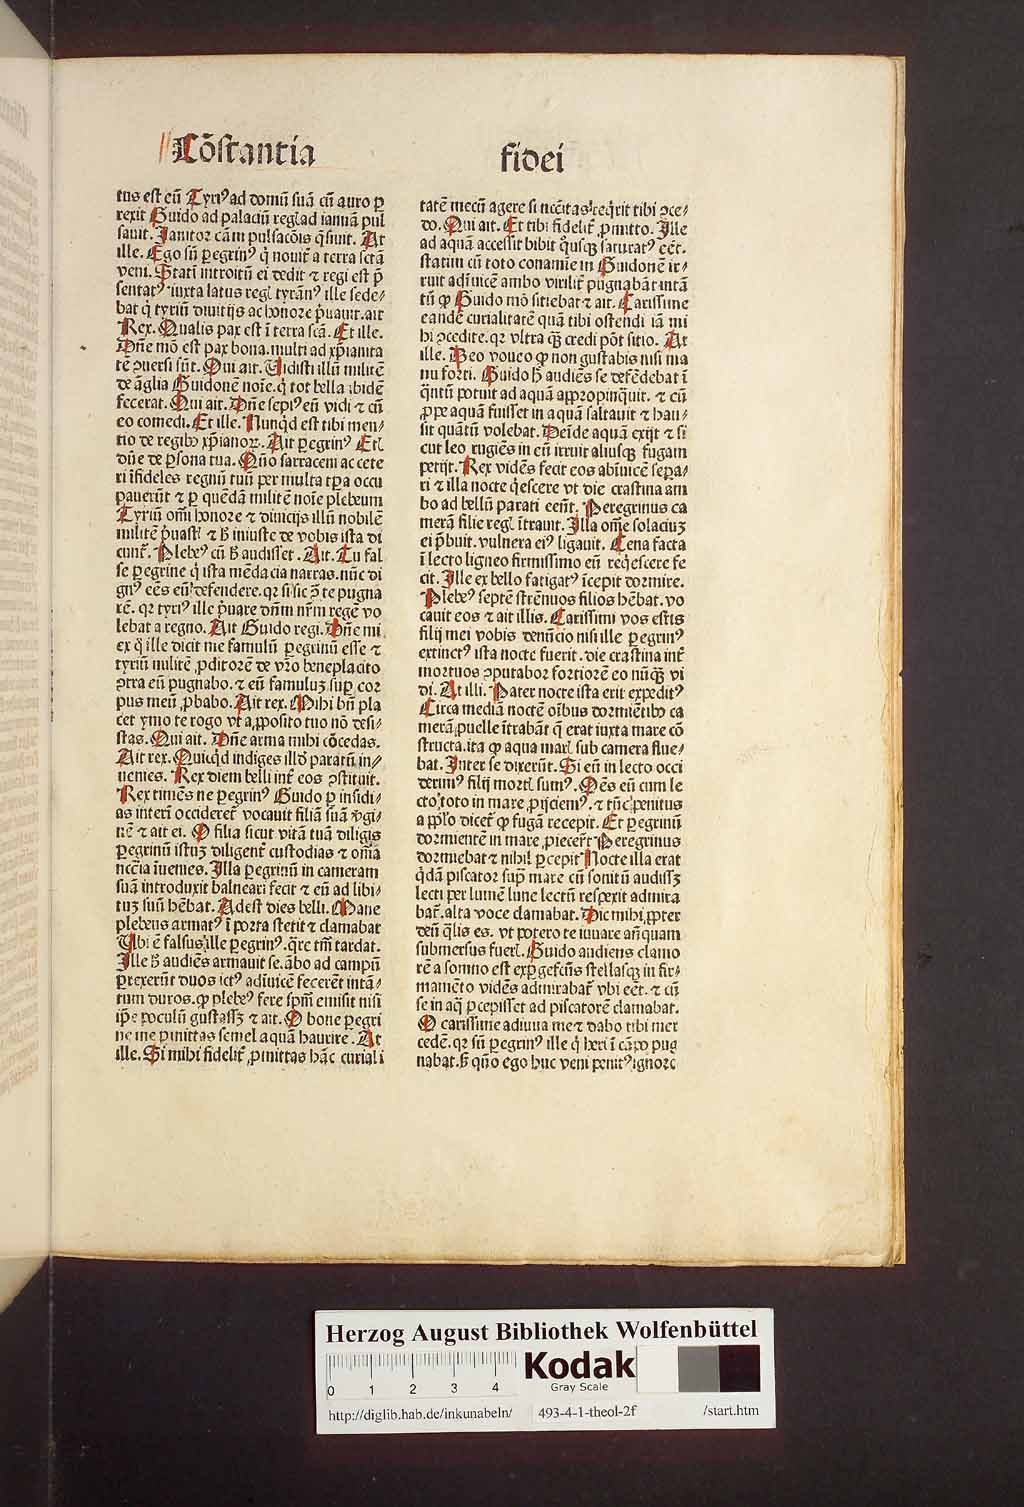 Cōstantia fidei
tus est eū Tyriꝰ ad domū suā cū auro ꝑ
rexit Guido ad palaciū regꝭ ad ianuā pul
sauit. Janitor cām pulsacōis q̄siuit. At
ille. Ego sū ꝑegrinꝰ q̇ nouit̓ a terra sctā
veni. Statī introitū ei dedit ⁊ regi est p̄
sentatꝰ iuxta latus regꝭ tyrānꝰ ille sede⸗
bat q̇ tyriū diuitijs ac honore p̓uauit. ait
Rex. Qualis pax est ī terra scā. Et ille.
Dn̄e mō est pax bona. multi ad xp̄ianita
tē ↄuersi sūt. Qui ait. Vidisti illū militē
de āglia Guidonē noīe. q̇ tot bella ibidē
fecerat. Qui ait. Dn̄e sepiꝰ eū vidi ⁊ cū
eo comedi. Et ille. Nunq̇d est tibi men⸗
tio de regibꝰ xp̄ianoꝝ. Ait ꝑegrinꝰ Etꝭ
dn̄e de ꝑsona tua. Qn̄o sarraceni ac cete
ri īfideles regnū tuū per multa tp̄a occu
pauerūt ⁊ ꝑ quēdā militē noīe plebeum
Tyriū om̄i honore ⁊ diuicijs illū nobilē
militē p̓uastꝭ ⁊ h̄ iniuste de vobis ista di
cunt̓. Plebeꝰ cū h̄ audisset. Ait. Tu fal
se ꝑegrine q̇ ista mēdacia narras. nūc di
gnꝰ eēs eū defendere. qꝛ si sic ↄ̄ te pugna
rē. qꝛ tyriꝰ ille p̓uare dn̄m nr̄m regē vo
lebat a regno. Ait Guido regi. Dn̄e mi
ex q̇ ille dicit me famulū ꝑegrinū esse ⁊
tyriū militē ꝓditorē de vr̄o beneplacito
ↄtra eū pugnabo. ⁊ eū famuluꝫ suꝑ cor
pus meū ꝓbabo. Ait rex. Mihi bn̄ pla
cet ymo te rogo vt a ꝓposito tuo nō desi⸗
stas. Qui ait. Dn̄e arma mihi cōcedas.
Ait rex. Quicq̇d indiges illd̓ paratū in⸗
uenies. Rex diem belli int̓ eos ↄstituit.
Rex timēs ne ꝑegrinꝰ Guido ꝑ insidi⸗
as interī occideret̓ vocauit filiā suā v̓gi⸗
nē ⁊ ait ei. O filia sicut vitā tuā diligis
ꝑegrinū istuꝫ diligent̓ custodias ⁊ om̄ia
nccīa īuenies. Illa ꝑegrinū in cameram
suā introduxit balneari fecit ⁊ eū ad libi⸗
tuꝫ suū hēbat. Adest dies belli. Mane
plebeus armatꝰ ī porta stetit ⁊ clamabat
Vbi ē falsus ille ꝑegrinꝰ. q̄re tm̄ tardat.
Ille h̄ audiēs armauit se. ābo ad campū
ꝑrexerūt duos ictꝰ adīuicē fecerēt intā⸗
tum duros. ꝙ plebeꝰ fere sp̄m emisit nisi
ip̄e poculū gustassꝫ ⁊ ait. O bone ꝑegri
ne me ꝑmittas semel aquā haurire. At
ille. Si mihi fidelit̓ ꝓmittas hāc curiali
tatē mecū agere si nccītas reqͥrit tibi ↄce⸗
do. Qui ait. Et tibi fidelit̓ ꝓmitto. Ille
ad aquā accessit bibit qͦusqꝫ saturatꝰ eēt.
statim cū toto conamīe in Guidonē ir⸗
ruit adīuicē ambo virilit̓ pugnabāt intā
tū ꝙ Guido mō sitiebat ⁊ ait. Carissime
eandē curialitatē quā tibi ostendi iā mi
hi ↄcedite. qꝛ vltra qꝫ credi pōt sitio. At
ille. Deo voueo ꝙ non gustabis nisi ma
nu forti. Guido h̄ audiēs se defēdebat ī
q̄ntū potuit ad aquā appropinq̄uit. ⁊ cū
ꝓpe aquā fuisset in aquā saltauit ⁊ hau⸗
sit quātū volebat. Deīde aquā exijt ⁊ si
cut leo rugiēs in eū irruit aliusqꝫ fugam
petijt. Rex vidēs fecit eos abīuicē sepa⸗
ri ⁊ illa nocte qͥescere vt die crastina am
bo ad bellū parati eent̓. Peregrinus ca
merā filie regꝭ ītrauit. Illa om̄e solaciuꝫ
ei p̓buit. vulnera eiꝰ ligauit. Cena facta
ī lecto ligneo firmissimo eū reqͥescere fe
cit. Ille ex bello fatigatꝰ īcepit dormire.
Plebeꝰ septē strēnuos filios hēbat. vo
cauit eos ⁊ ait illis. Carissimi vos estis
filij mei vobis denūcio nisi ille ꝑegrinꝰ
extinctꝰ ista nocte fuerit. die crastina int̓
mortuos ↄputabor fortiorē eo nūqꝫ vi
di. At illi. Pater nocte ista erit expeditꝰ
Circa mediā noctē oībus dormiētibꝰ ca
merā puelle ītrabāt q̄ erat iuxta mare cō
structa. ita ꝙ aqua marꝭ sub camera flue⸗
bat. Inter se dixerūt. Si eū in lecto occi
derimꝰ filij mortꝭ sumꝰ. Oēs eū cum le
cto toto in mare ꝓijciemꝰ. ⁊ tūc penitus
a pp̄lo dicet̓ ꝙ fugā recepit. Et ꝑegrinū
dormientē in mare ꝓiecer̄t. Peregrinus
dormiebat ⁊ nihil ꝑcepit Nocte illa erat
q̇dā piscator sup̄ mare cū sonitū audissꝫ
lecti per lumē lune lectū respexit admira
bat̓. alta voce clamabat. Dic mihi ꝓpter
deū q̄lis es. vt potero te iuuare an̄quam
submersus fuerꝭ. Guido audiens clamo
rē a somno est exꝑgefcūs stellasqꝫ in fir⸗
mamēto vidēs admirabat̓ vbi eēt. ⁊ cū
se in aq̄ ꝑcepisset ad piscatorē clamabat.
O carissime adiuua me ⁊ dabo tibi mer
cedē. qꝛ sū ꝑegrinꝰ ille q̇ heri ī cāpo pug
nabat. h̄ qn̄o ego huc veni penitꝰ ignoro
Herzog August Bibliothek Wolfenbüttel
0 1 2 3 4
Kodak
Gray Scale
http://diglib.hab.de/inkunabeln/ 493-4-1-theol-2f /start.htm